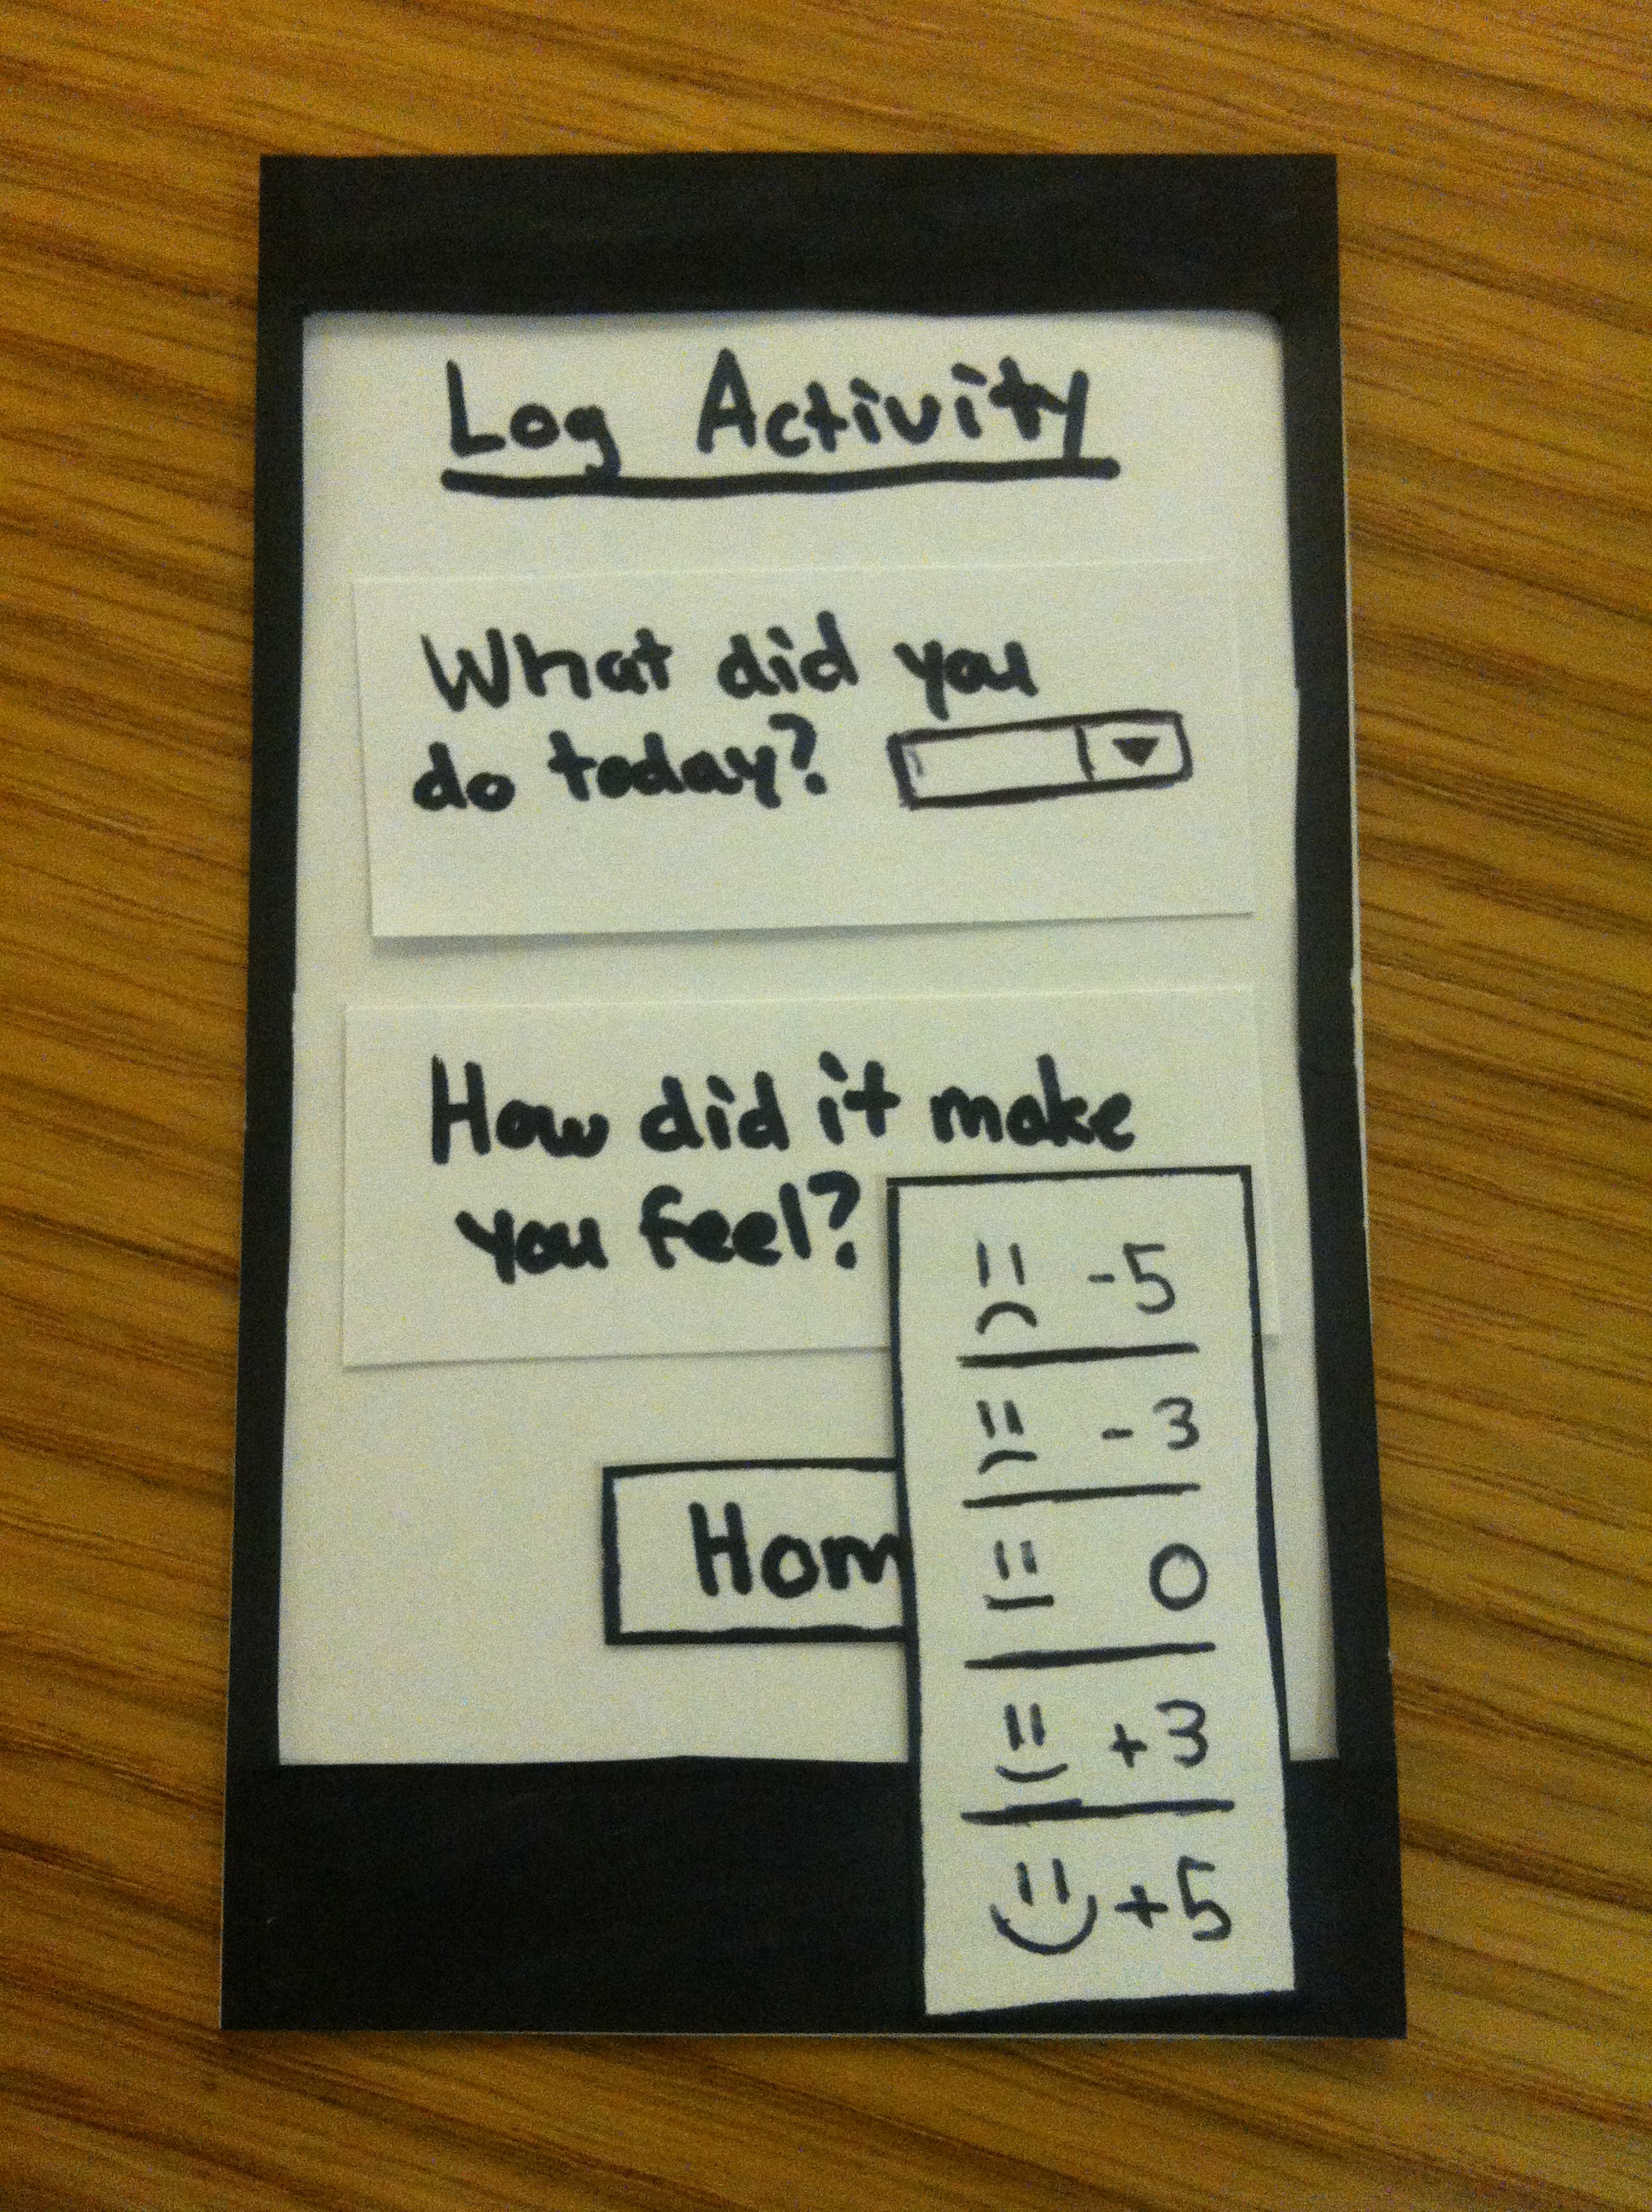 Log Activity
What did you
do today?
How did it make
you feel?
-5
-3
0
+3
+5
Hom